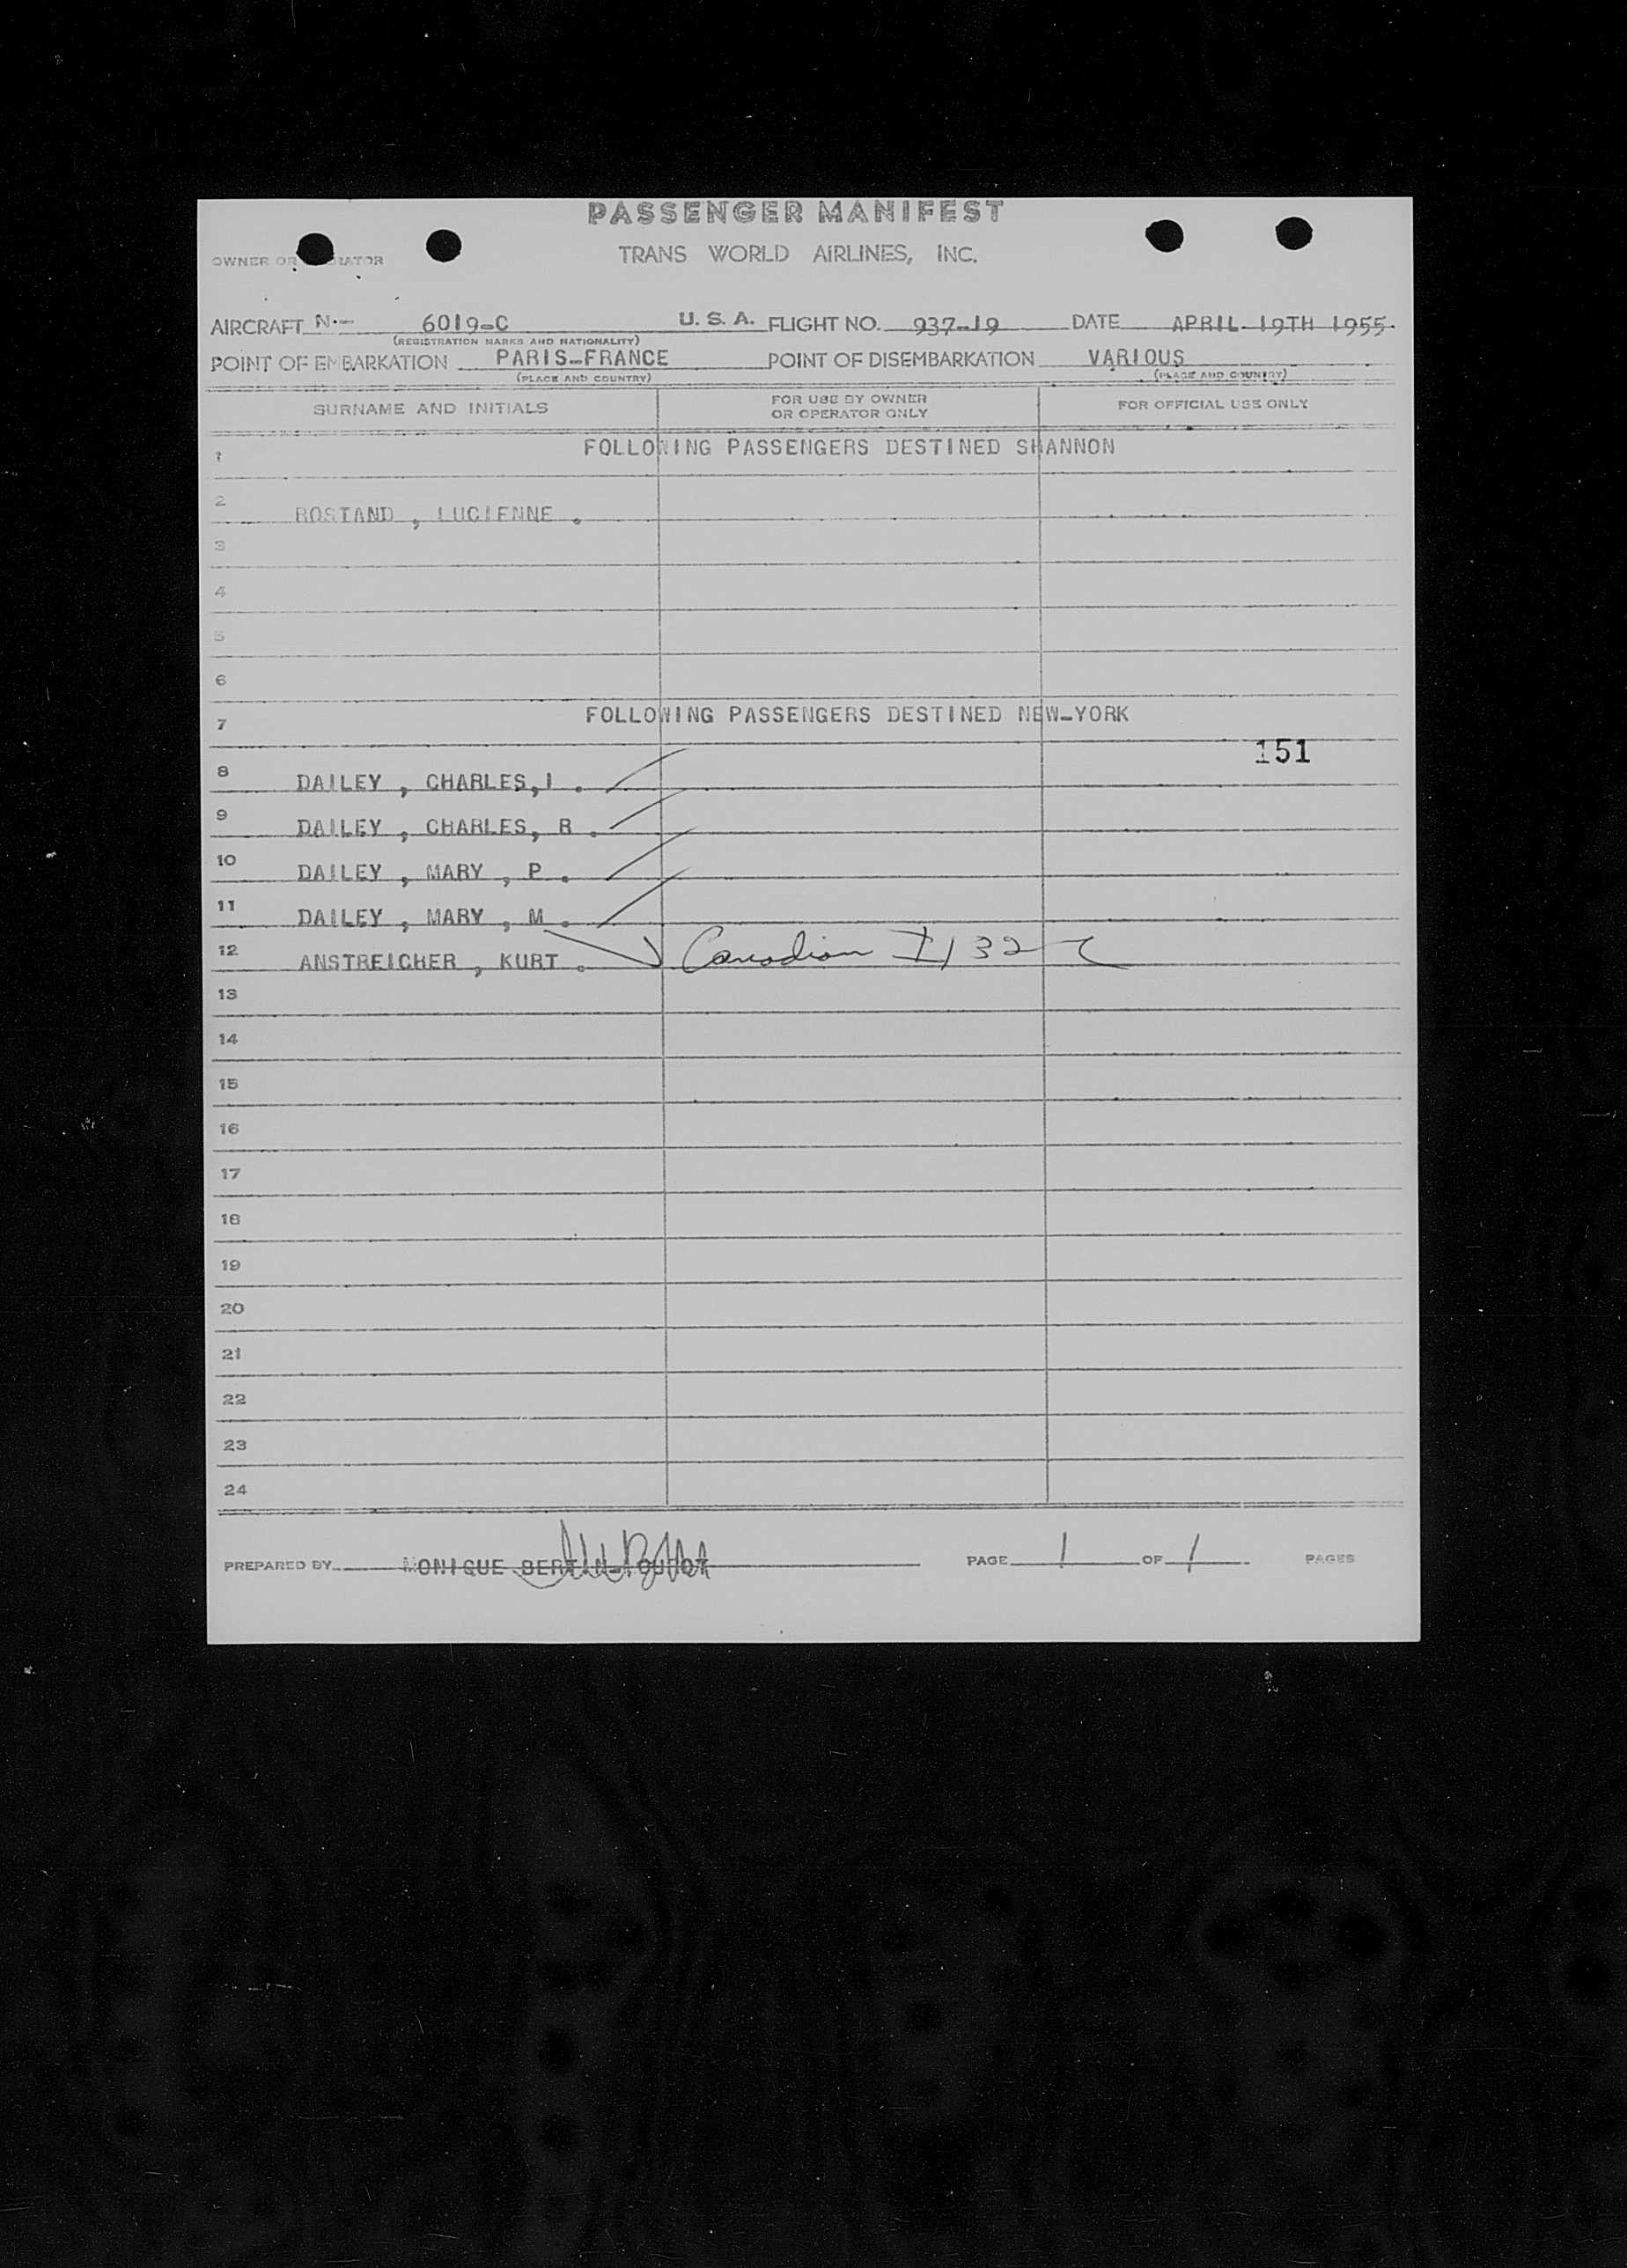 PASSENGER MANIFEST
OWNER OR
TRANS WORLD AIRLINES, INC.
AIRCRAFT N.- 6019-C U. S. A. FLIGHT NO. 937-19 DATE APRIL 19TH 1955.
(REGISTRATION MARKS AND NATIONALITY)
POINT OF EMBARKATION PARIS-FRANCE POINT OF DISEMBARKATION VARIOUS
(PLACE AND COUNTRY) (PLACE AND COUNTRY)
SURNAME AND INITIALS FOR USE BY OWNER OR OPERATOR ONLY FOR OFFICIAL USE ONLY
1 FOLLOWING PASSENGERS DESTINED SHANNON
2 ROSTAND , LUCIENNE .
3
4
5
6
7 FOLLOWING PASSENGERS DESTINED NEW-YORK
151
8 DAILEY , CHARLES,I .
9 DAILEY , CHARLES, R .
10 DAILEY , MARY , P .
11 DAILEY , MARY , M .
12 ANSTREICHER , KURT . Canadian I/32
13
14
15
16
17
18
19
20
21
22
23
24
PREPARED BY MONIQUE PAGE 1 OF 1 PAGES